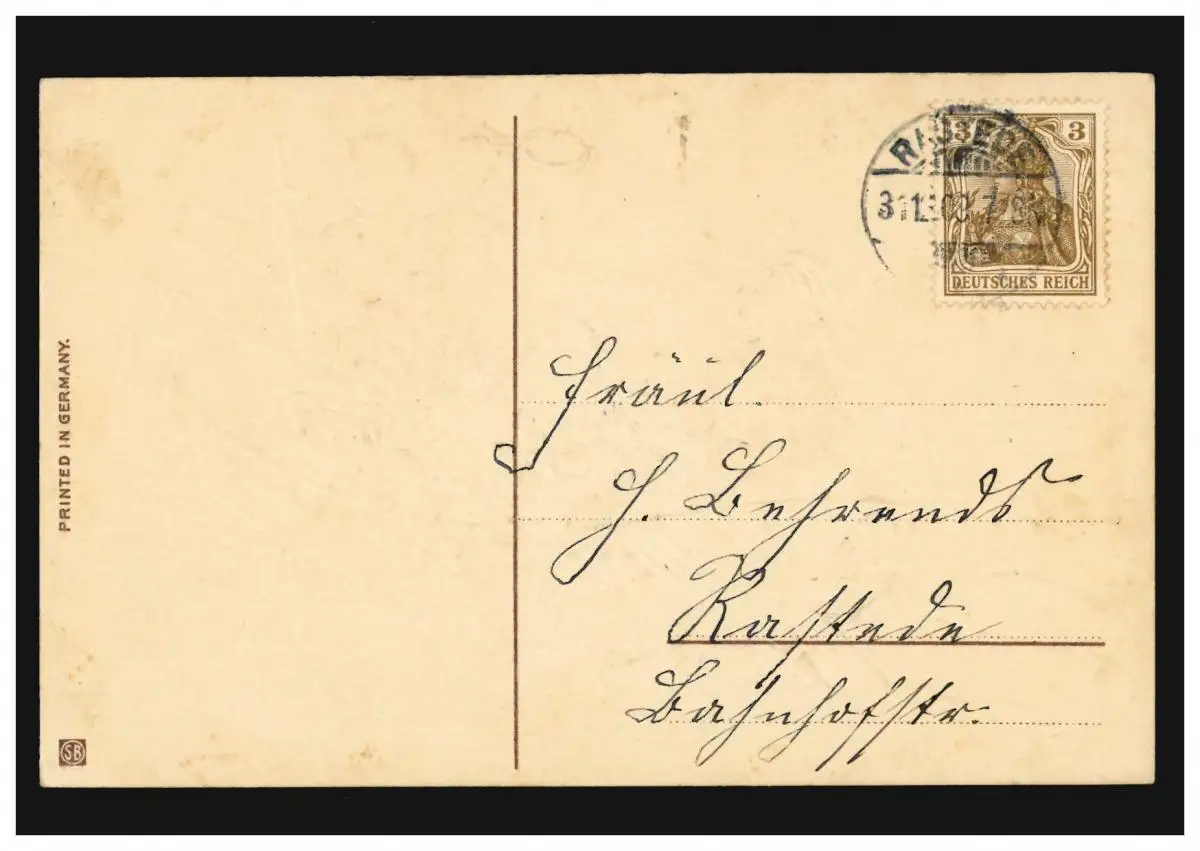 PRINTED IN GERMANY.
SB
RASTEDE
3 3
DEUTSCHES REICH
Fräul.
H. Behrends
Rastede
Bahnhofstr.